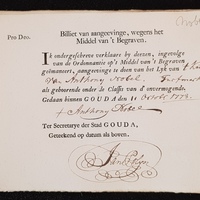 Pro Deo.
Billiet van aangeevinge, wegens het
Middel van 't Begraven.
Ik ondergeschreve verklaare by deezen, ingevolge
van de Ordonnantie op 't Middel van 't Begraven
geëmaneert, aangeevinge te doen van het Lyk van
Van Anthony Nobel
als gehoorende onder de Classis van d onvermogende.
Gedaan binnen GOUDA den 11 October 1772
Anthony Nobel
Ter Secretarye der Stad GOUDA,
Geteekend op datum als boven.